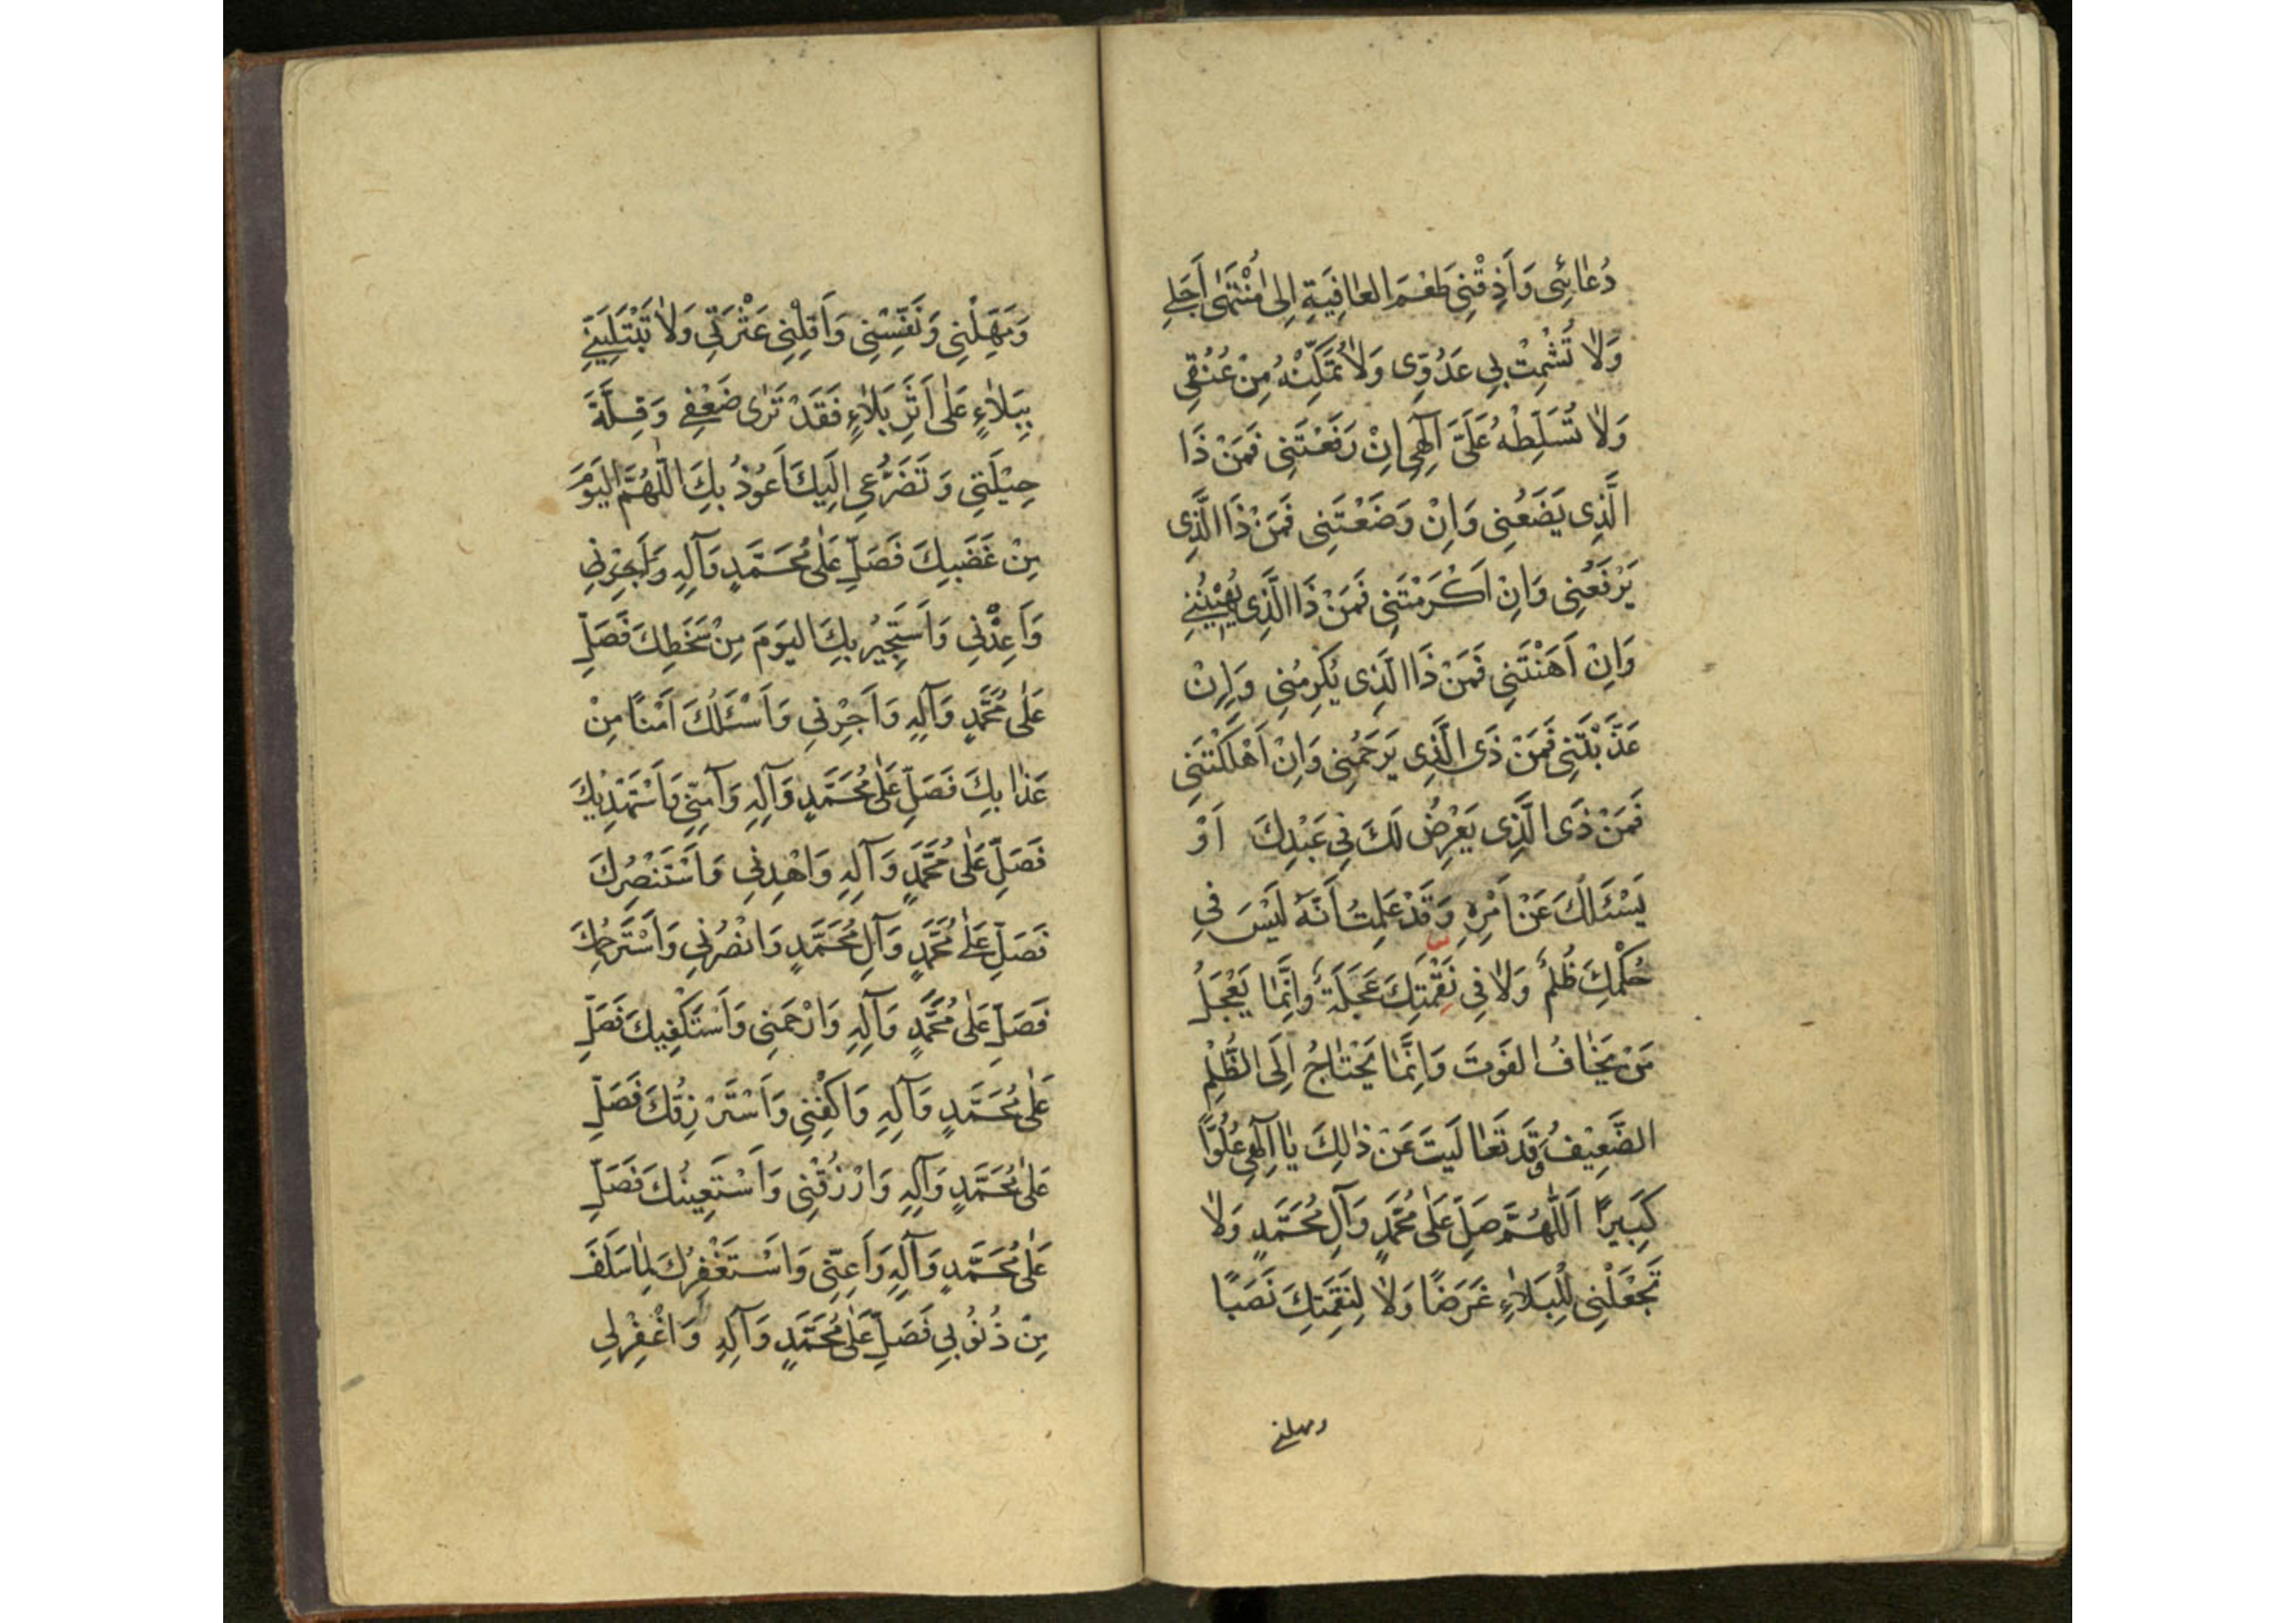 دُعٰائِی وَاَذِقْنِی طَعْمَ العٰافِیَةِ اِلیٰ مُنْتَهیٰ اَجَلِی
وَلاٰ تُشْمِتْ بِی عَدُوِّی وَلاٰ تُمَكِّنْهُ مِنْ عُنُقِی
وَلاٰ تُسَلِّطْهُ عَلَیَّ اِلٰهِی اِنْ رَفَعْتَنِی فَمَنْ ذَا
الَّذِی یَضَعُنِی وَاِنْ وَضَعْتَنِی فَمَنْ ذَا الَّذِی
یَرْفَعُنِی وَاِنْ اَكْرَمْتَنِی فَمَنْ ذَا الَّذِی یُهِیْنُنِی
وَاِنْ اَهَنْتَنِی فَمَنْ ذَا الَّذِی یُكرِمُنِی وَاِنْ
عَذَّبْتَنِی فَمَنْ ذَی الَّذِی یَرحَمُنِی وَاِنْ اَهْلَكْتَنِی
فَمَنْ ذَی الَّذِی یَعْرِضُ لَكَ فِی عَبْدِكَ اَوْ
یَسْئَلُكَ عَنْ اَمْرِهِ وَقَدْ عَلِمتُ اَنَّهُ لَیْسَ فِی
حُكْمِكَ ظُلمٌ وَلاٰ فِی نَقِْمَتِكَ عَجَلَةٌ وَاِنَّمٰا یَعْجَلُ
مَنْ یَخٰافُ الفَوتَ وَاِنَّمٰا یَحْتٰاجُ اِلَی الظُّلْمِ
الضَّعِیْفُ وَقَد تَعٰالَیتَ عَنْ ذٰلِكَ یٰا اِلٰهِی عُلُوًّا
كَبِیرًا اَللّٰهُمَّ صَلِّ عَلیٰ مُحَمَّدٍ وَآلِ مُحَمَّدٍ وَلاٰ
تَجْعَلْنِی لِلْبَلاٰءِ غَرَضًا وَلاٰ لِنَقِمَتِكَ نَصَبًا
ومهلنی
وَمَهِّلْنِی وَنَفِّسْنِی وَاَقِلْنِی عَثْرَتِی وَلاٰ تَبْتَلِیَنِّی
بِبَلاٰءٍ عَلیٰ اَثَرِ بَلاٰءٍ فَقَدْ تَرٰی ضَعْفِی وَقِلَّةَ
حِیْلَتِی وَتَضَرُّعِی اِلَیكَ اَعُوْذُ بِكَ اللّٰهُمَّ الیَوْمَ
مِنْ غَضَبِكَ فَصَلِّ عَلیٰ مُحَمَّدٍ وَآلِهِ وَاَجِرْنِی
وَاَعِذْنِی وَاَسْتَجِیْرُ بِكَ الیَوْمَ مِنْ سَخَطِكَ فَصَلِّ
عَلیٰ مُحَمَّدٍ وَآلِهِ وَاَجِرْنِی وَاَسْئَلُكَ اَمْنًا مِنْ
عَذٰابِكَ فَصَلِّ عَلیٰ مُحَمَّدٍ وَآلِهِ وَآمِنِّی وَاَسْتَهْدِیْكَ
فَصَلِّ عَلیٰ مُحَمَّدٍ وَآلِهِ وَاهْدِنِی وَاَسْتَنْصِرُكَ
فَصَلِّ عَلیٰ مُحَمَّدٍ وَآلِ مُحَمَّدٍ وَانْصُرْنِی وَاَسْتَرحِمُكَ
فَصَلِّ عَلیٰ مُحَمَّدٍ وَآلِهِ وَارْحَمنِی وَاَسْتَكْفِیكَ فَصَلِّ
عَلیٰ مُحَمَّدٍ وَآلِهِ وَاكْفِنِی وَاَسْتَرْزِقُكَ فَصَلِّ
عَلیٰ مُحَمَّدٍ وَآلِهِ وَارْزُقْنِی وَاَسْتَعِینُكَ فَصَلِّ
عَلیٰ مُحَمَّدٍ وَآلِهِ وَاَعِنِّی وَاَسْتَغْفِرُكَ لِمٰا سَلَفَ
مِنْ ذُنُوْبِی فَصَلِّ عَلیٰ مُحَمَّدٍ وَآلِهِ وَاغْفِرْلِی